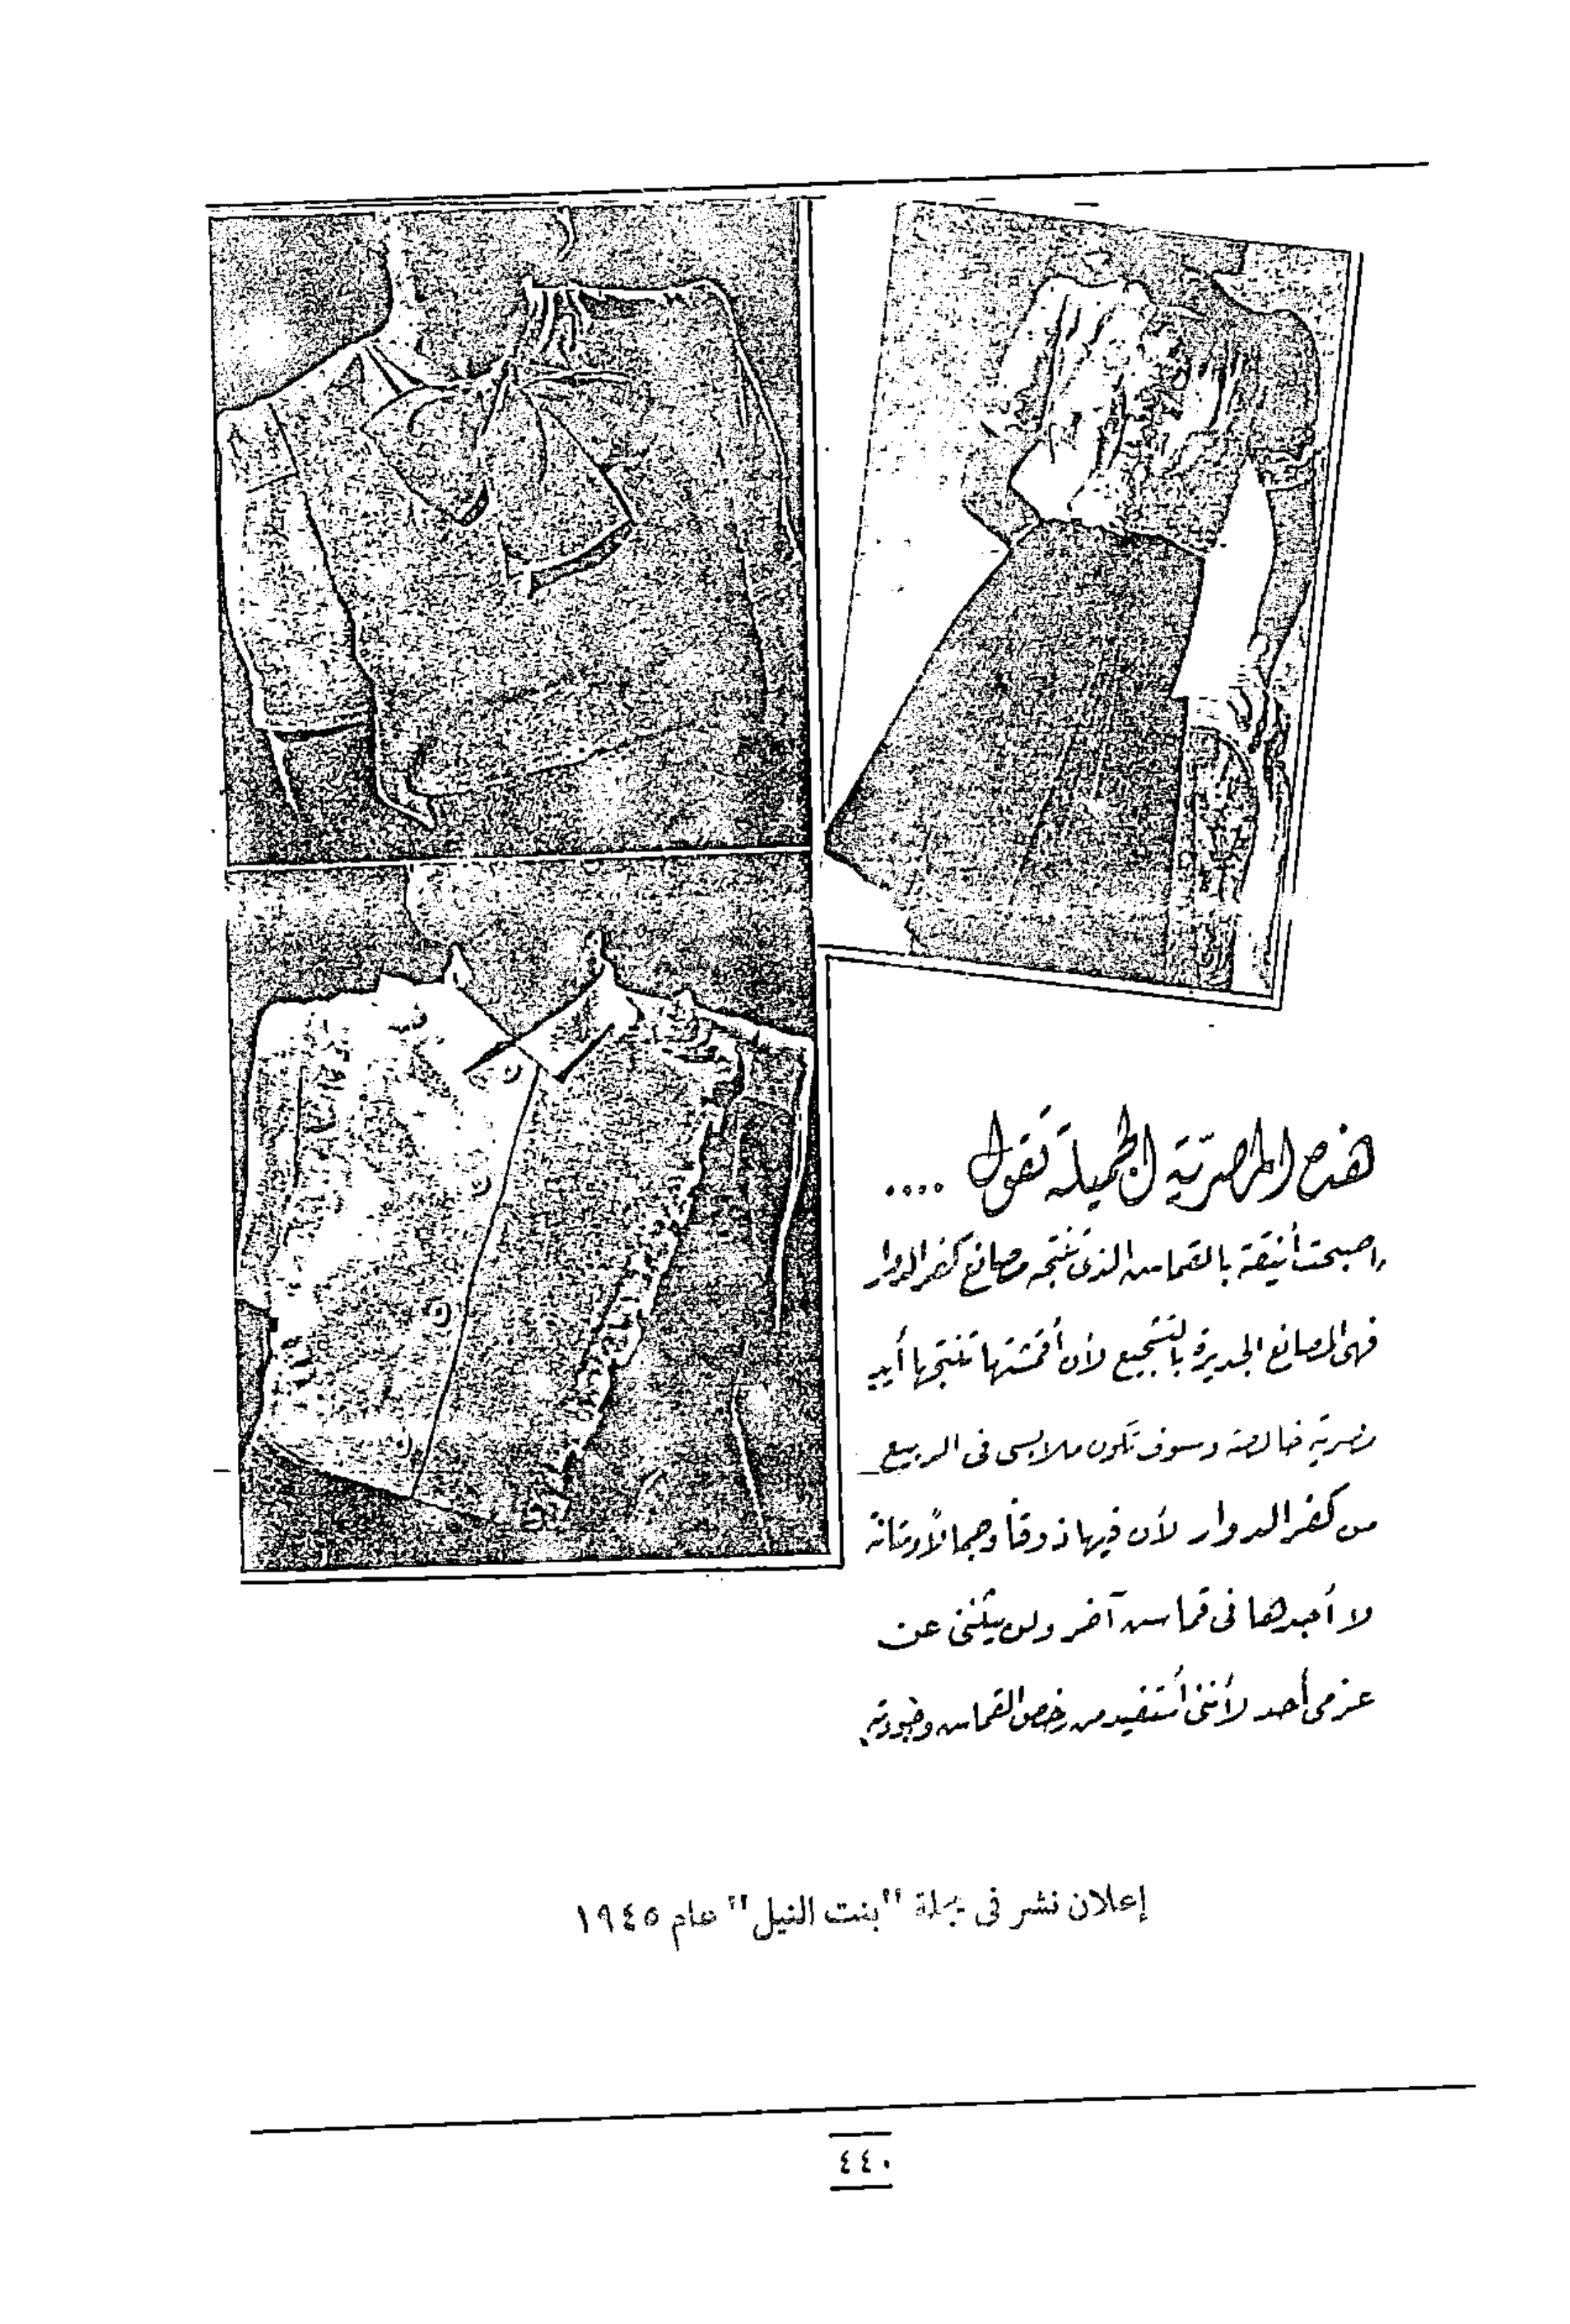 هذه المصريّة الجميلة تقول ....
أصبحت أنيقة بالقماش الذى تنتجه مصانع كفر الدوار
فهى المصانع الجديرة بالتشجيع لأن أقمشتها تنتجها أيد
مصرية خالصة وسوف تكون ملابسى فى الربيع
من كفر الدوار لأن فيها ذوقاً وجمالاً ومتانة
لا أجدها فى قماش آخر ولن يثنينى عن
عزمى أحد لأننى أستفيد من رخص القماش وجودته
إعلان نشر فى مجلة "بنت النيل" عام ١٩٤٥
٤٤٠